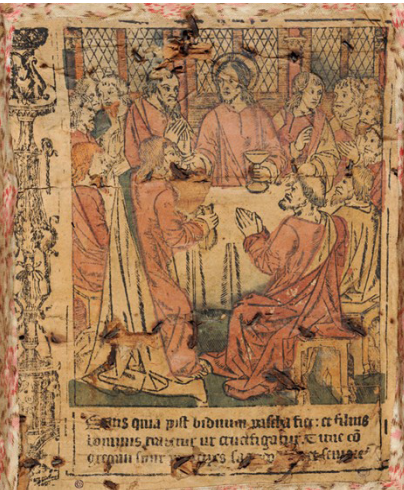 quia post biduum pascha fiet: et filius
hominis tradetur ut crucifigatur Tunc cō
gregati sunt